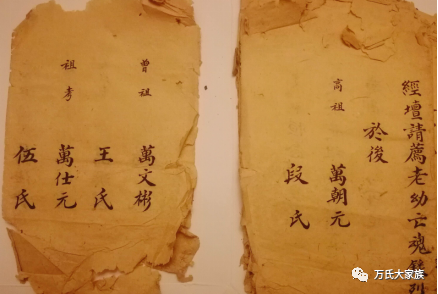 經壇請薦老幼亡魂列
於後
高祖 萬朝元
段氏
曾祖 萬文彬
王氏
祖考 萬仕元
伍氏
万氏大家族